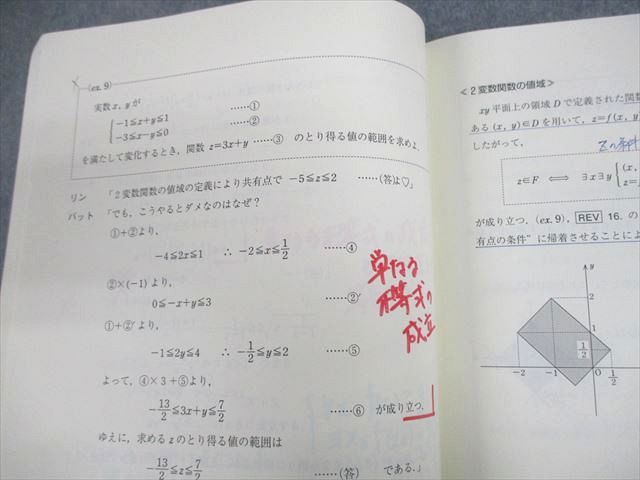 (ex. 9)
実数x, yが
-1≦x+y≦1 ……①
-3≦x-y≦0 ……②
を満たして変化するとき, 関数 z=3x+y ……③ のとり得る値の範囲を求めよ.
リン 「2変数関数の値域の定義により共有点で -5≦z≦2 ……(答は♡)」
バット 「でも, こうやるとダメなのはなぜ?
①+②より,
-4≦2x≦1 ∴ -2≦x≦1/2 ……④
②×(-1) より,
0≦-x+y≦3 ……②′
①+②′より,
-1≦2y≦4 ∴ -1/2≦y≦2 ……⑤
よって, ④×3+⑤より,
-13/2≦3x+y≦7/2 ……⑥ が成り立つ.
ゆえに, 求めるzのとり得る値の範囲は
-13/2≦z≦7/2 ……(答) である.」
単なる
不等式の
成立
<2変数関数の値域>
xy平面上の領域Dで定義された関数
ある (x, y)∈D を用いて, z=f(x, y)
したがって,
zの条件
z∈F ⟺ ∃x∃y
が成り立つ. (ex. 9), REV 16. の
有点の条件”に帰着させることによ
y
2
1
1/2
-2
-1
0
1/2